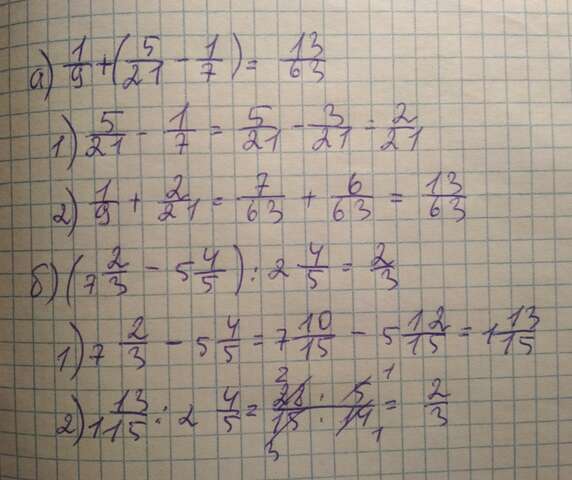 а) 1/9 + (5/21 - 1/7) = 13/63
1) 5/21 - 1/7 = 5/21 - 3/21 = 2/21
2) 1/9 + 2/21 = 7/63 + 6/63 = 13/63
б) (7 2/3 - 5 4/5) : 2 4/5 = 2/3
1) 7 2/3 - 5 4/5 = 7 10/15 - 5 12/15 = 1 13/15
2) 1 13/15 : 2 4/5 = 28/15 : 5/14 = 2/3
2 1
3 1